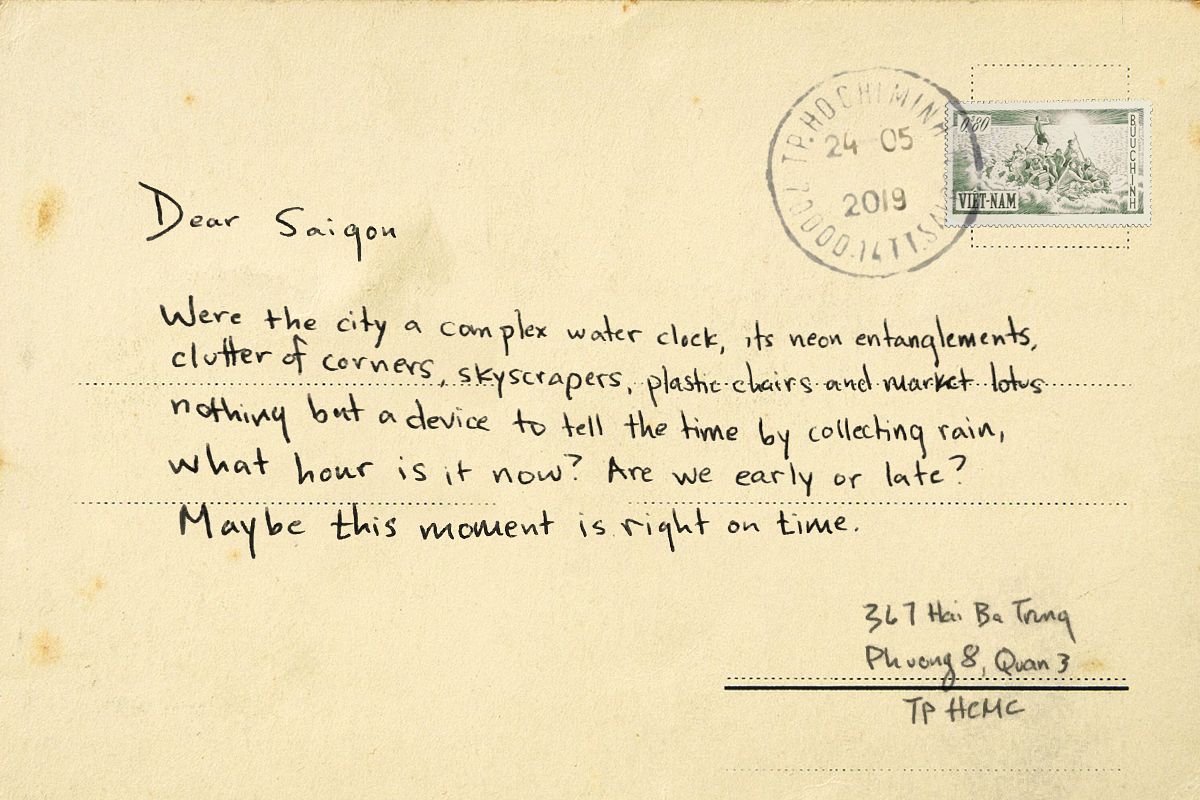 TP.HO CHI MINH
24 05
2019
0$80
BUU CHINH
VIET-NAM
Dear Saigon
Were the city a complex water clock, its neon entanglements,
clutter of corners, skyscrapers, plastic chairs and market lotus
nothing but a device to tell the time by collecting rain,
what hour is it now? Are we early or late?
Maybe this moment is right on time.
367 Hai Ba Trung
Phuong 8, Quan 3
TP HCMC